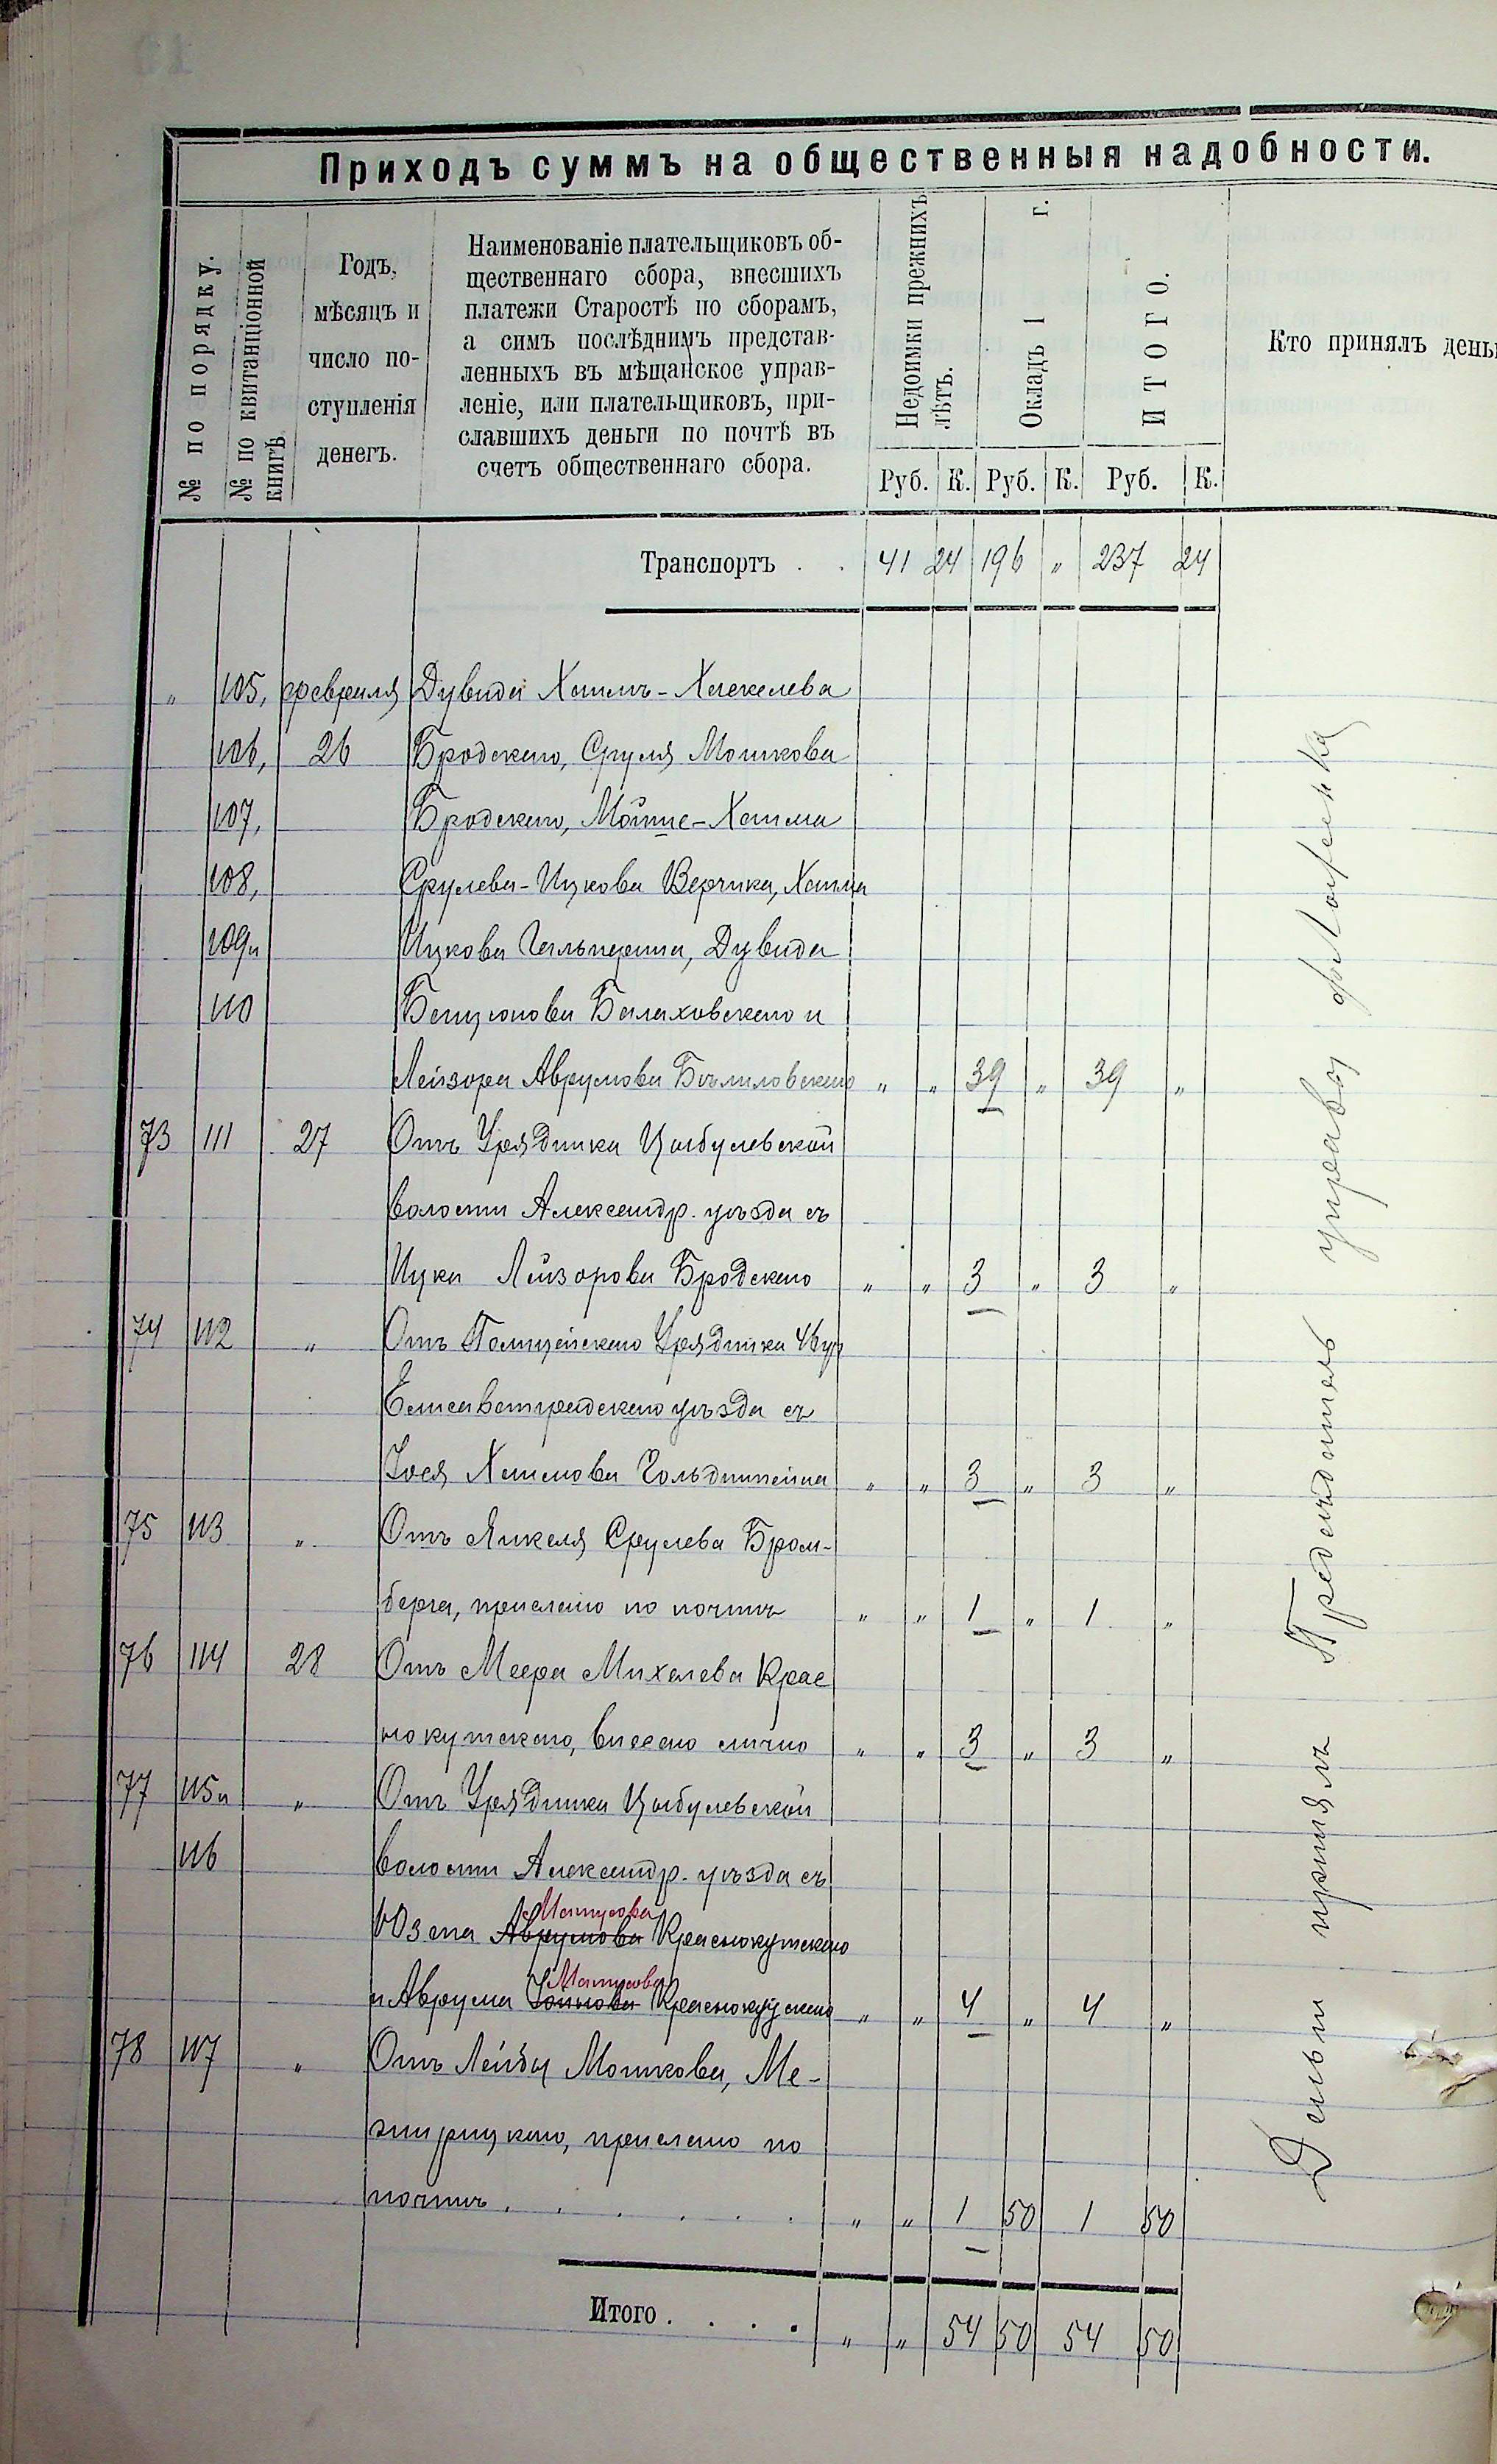 Приходъ суммъ на общественныя надобности.
№ по порядку.
№ по квитанціонной
книгѣ
Годъ,
мѣсяцъ и
число по-
ступленія
денегъ.
Наименованіе плательщиковъ об-
щественнаго сбора, внесшихъ
платежи Старостѣ по сборамъ,
а симъ послѣднимъ представ-
ленныхъ въ мѣщанское управ-
леніе, или плательщиковъ, при-
славшихъ деньги по почтѣ въ
счетъ общественнаго сбора.
Недоимки прежнихъ
лѣтъ.
Окладъ 1 г.
ИТОГО.
Кто принялъ день
Руб. К. Руб. К. Руб. К.
Транспортъ . . 41 24 196 „ 237 24
„ 105, февраля Дувида Хаимъ-Хаскелева
106, 26 Бродскаго, Сруля Мошкова
107, Бродскаго, Мойше-Хаима
108, Срулева-Ицкова Верника, Хаима
109 и Ицкова Гальперина, Дувида
110 Бенціонова Балаховскаго и
Лейзора Аврумова Бѣлиловскаго „ „ 39 „ 39 „
73 111 27 Отъ Урядника Цыбулевской
волости Александр. уѣзда съ
Ицка Лейзорова Бродскаго „ „ 3 „ 3 „
74 112 „ Отъ Полицейскаго Урядника 4 уч
Елисаветградскаго уѣзда съ
Іося Хаимова Гольдштейна „ „ 3 „ 3 „
75 113 „ Отъ Янкеля Срулева Бром-
берга, прислано по почтѣ „ „ 1 „ 1 „
76 114 28 Отъ Меера Михелева Крас
нокутскаго, внесено лично „ „ 3 „ 3 „
77 115 и „ Отъ Урядника Цыбулевской
116 волости Александр. уѣзда съ
Матусова
Юзепа Аврумова Краснокутскаго
Матусова
и Аврума Краснокутскаго „ „ 4 „ 4 „
78 117 „ Отъ Лейбы Мошкова, Ме-
жирицкаго, прислано по
почтѣ . . . . . . „ „ 1 50 1 50
Итого . . . . „ „ 54 50 54 50
Деньги принялъ Предсѣдатель управы